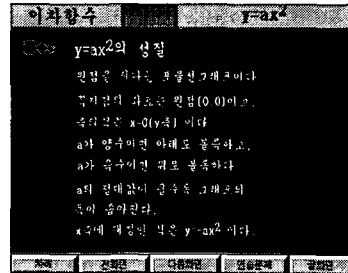 이차함수 y=ax²
y=ax2의 성질
원점을 지나는 포물선그래프이다
꼭지점의 좌표는 원점(0.0)이고,
축의식은 x=0(y축) 이다
a가 양수이면 아래로 볼록하고,
a가 음수이면 위로 볼록하다
a의 절대값이 클수록 그래프의
폭이 좁아진다.
x축에 대칭인 식은 y=-ax2 이다.
차례 전화면 다음화면 연습문제